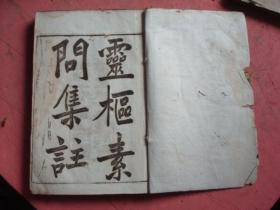 靈樞素
問集註